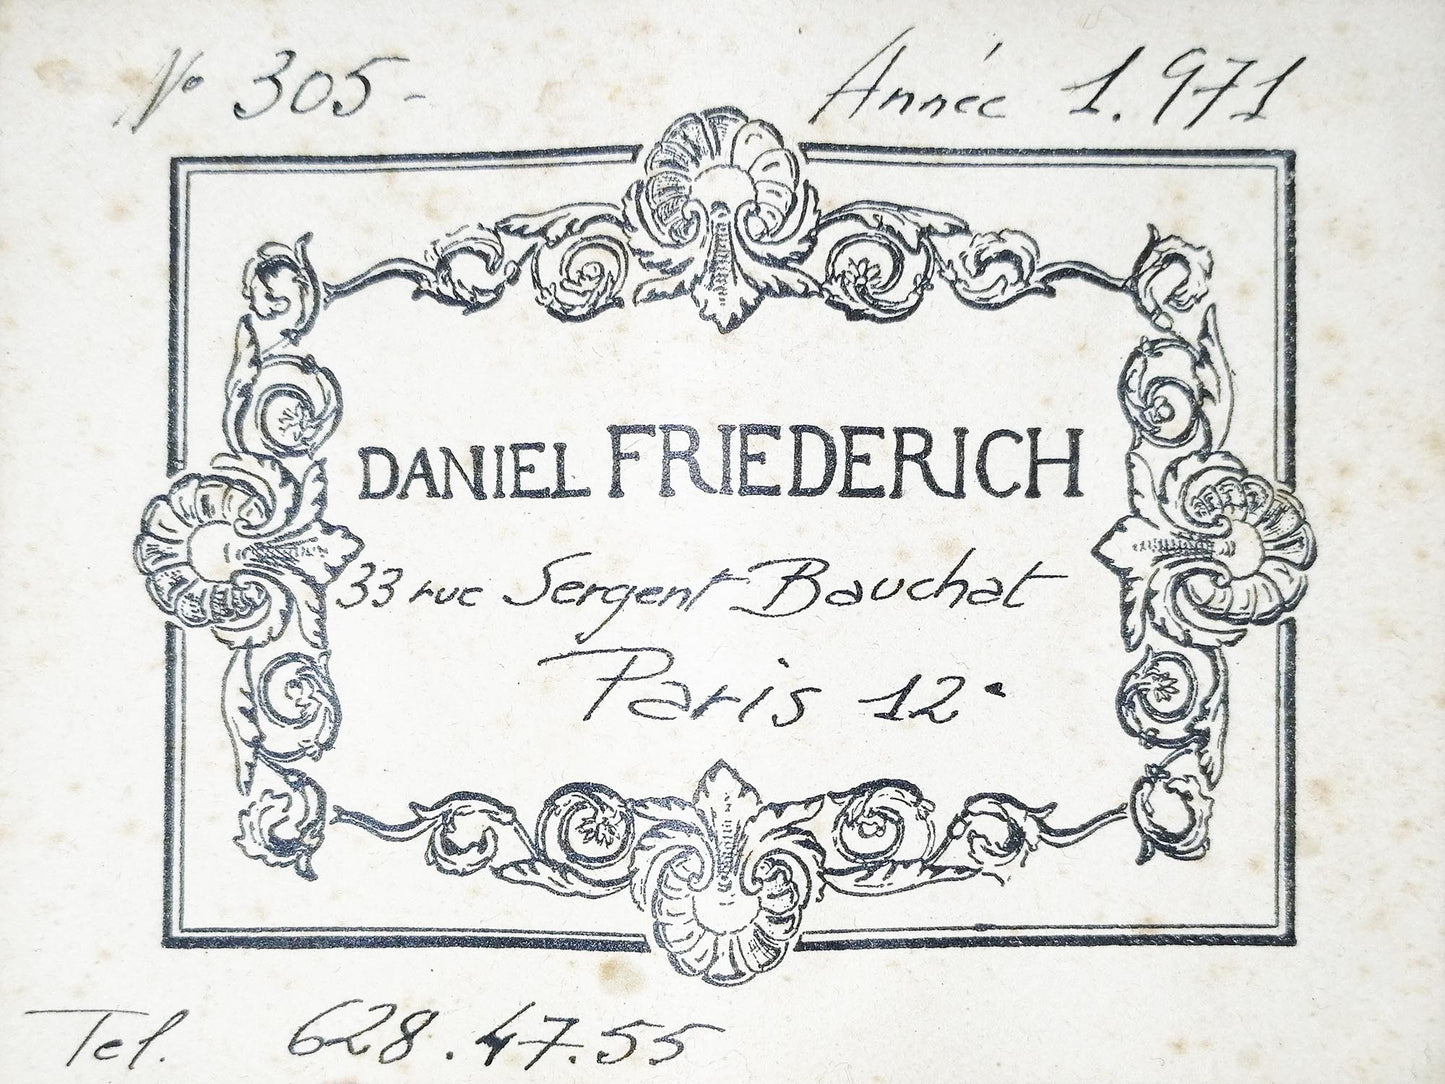 N° 305-
Année 1.971
DANIEL FRIEDERICH
33 rue Sergent Bauchat
Paris 12e
Tel. 628.47.55